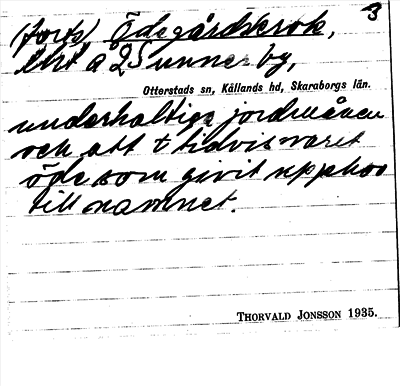 (forts) Ödegårdskrok, 3
lht å 2 Sunnersby,
Otterstads sn, Kållands hd, Skaraborgs län.
underhaltiga jordmånen
och att t tidvis varit
öde som givit upphov
till namnet.
THORVALD JONSSON 1935.